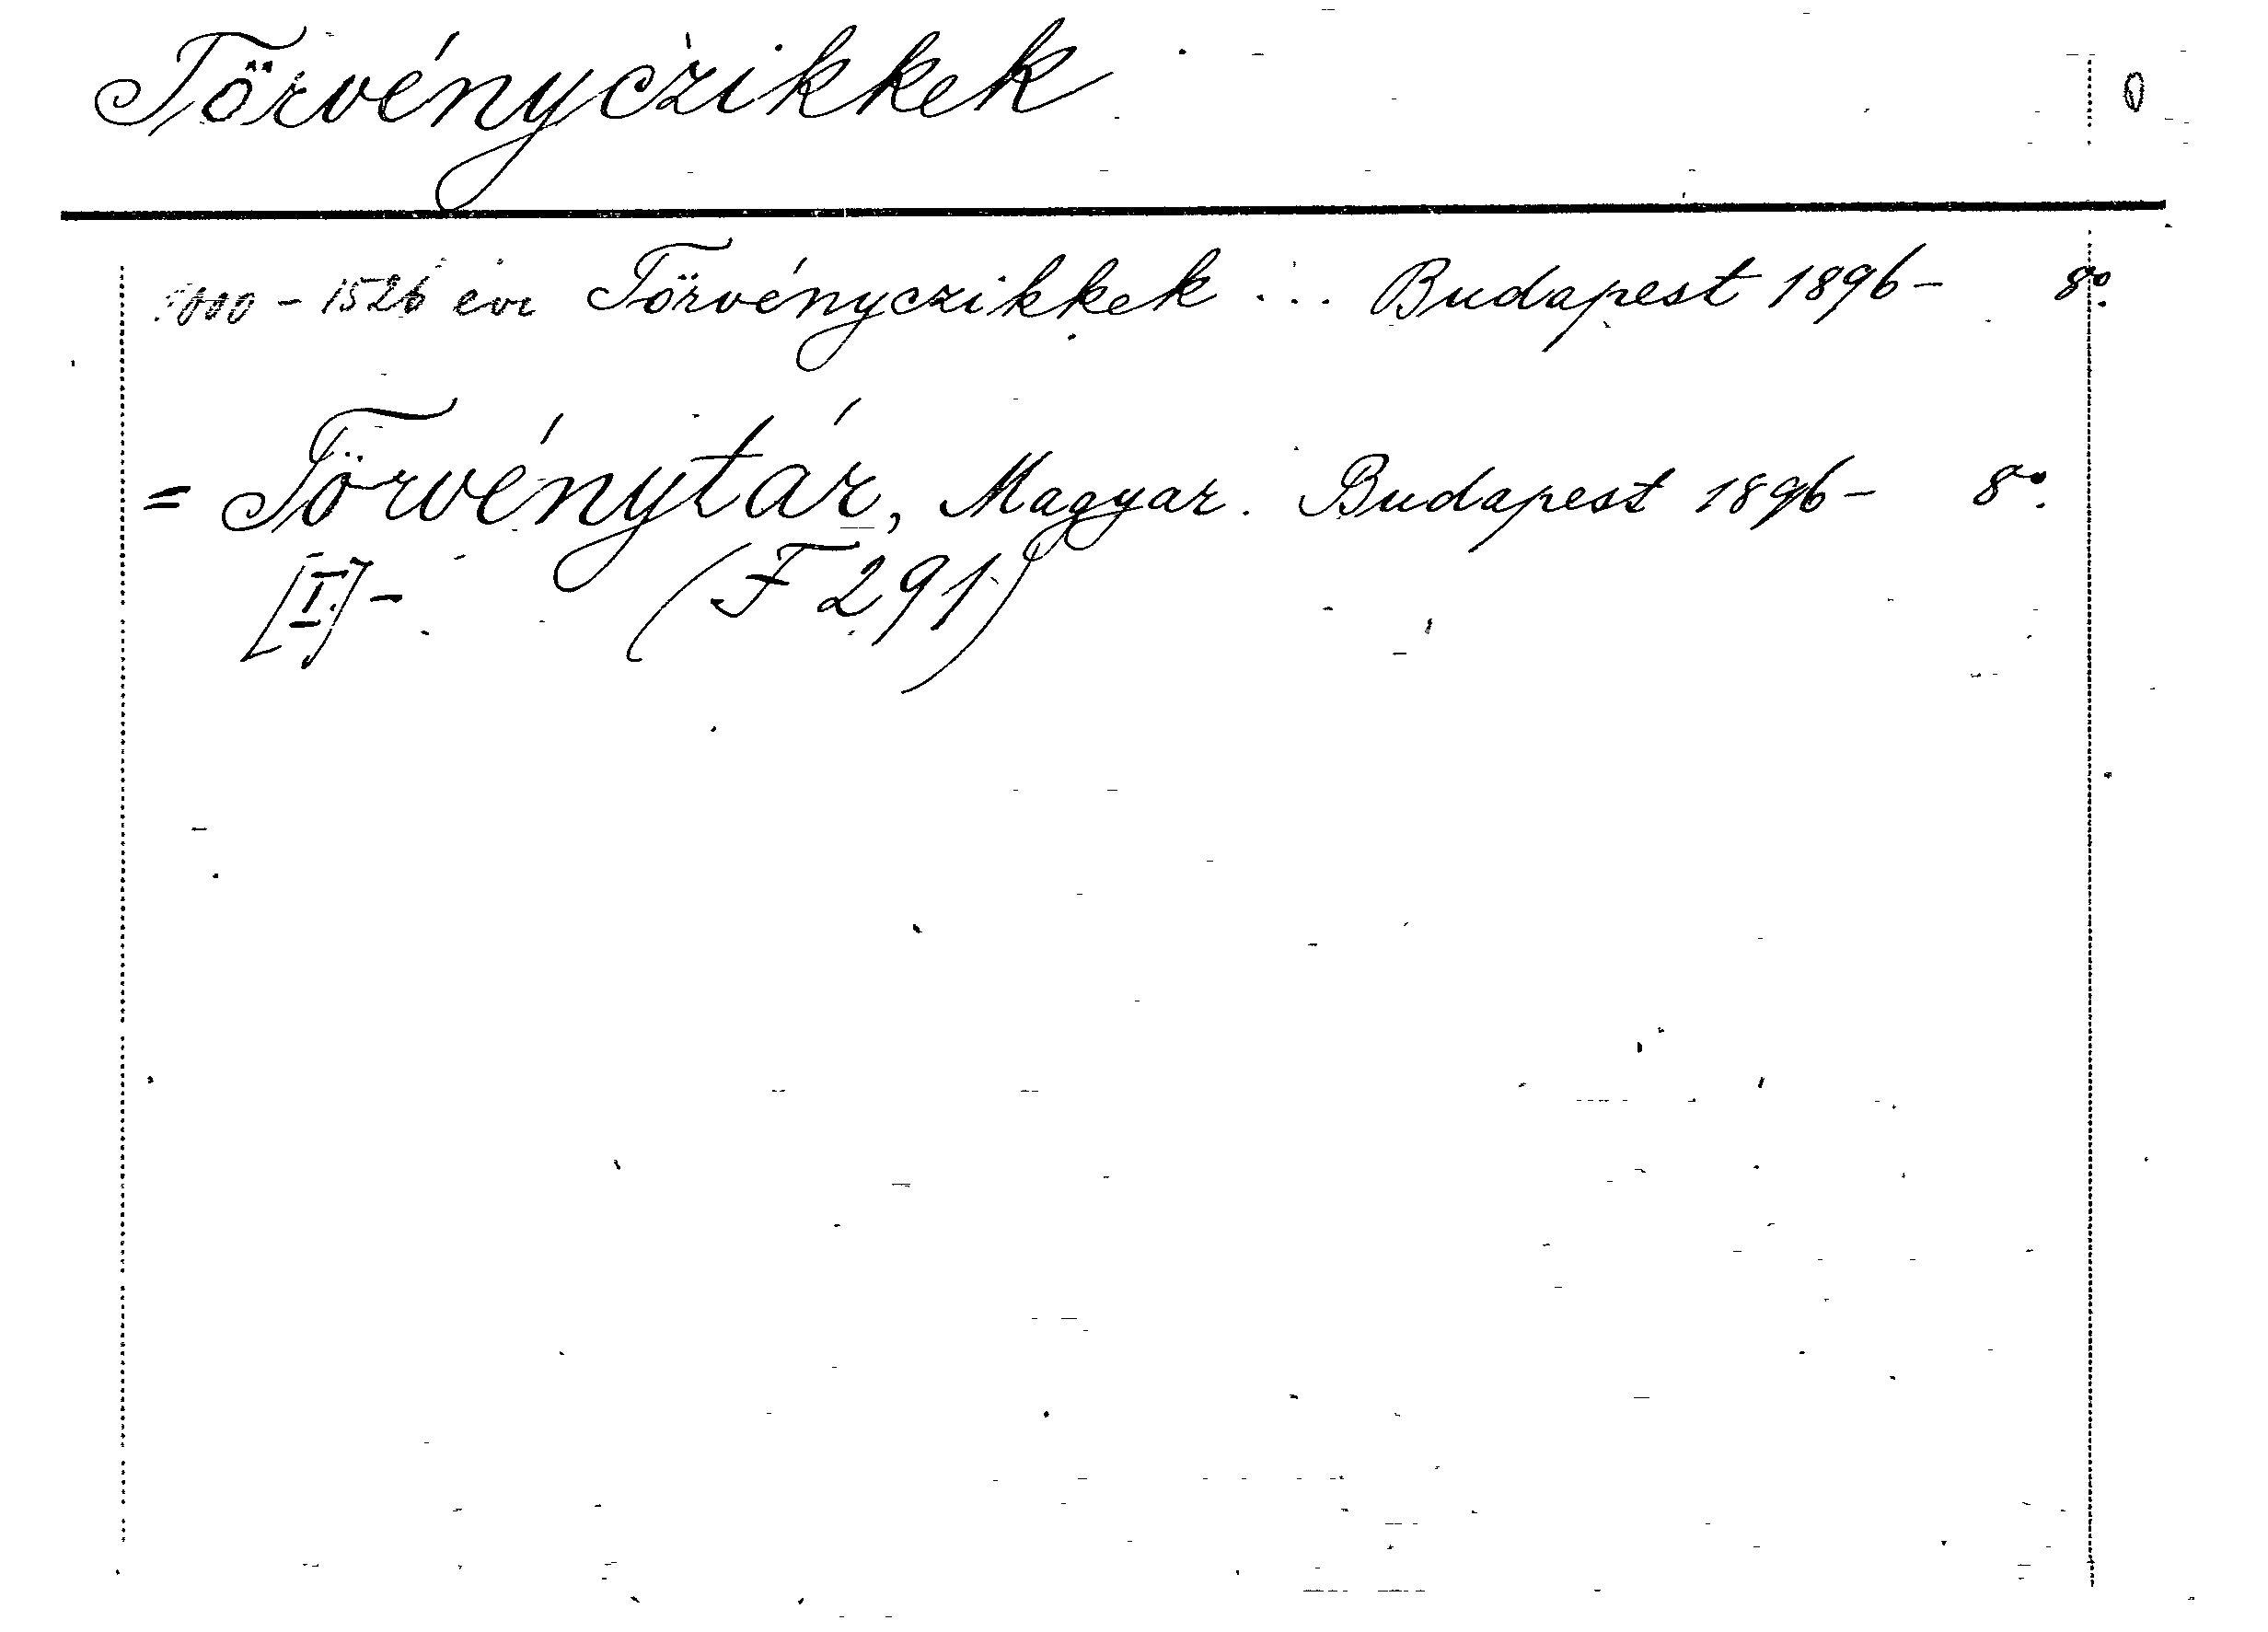 Törvényczikkek 0
1000 - 1526 évi Törvényczikkek ... Budapest 1896- 8º.
= Törvénytár, Magyar. Budapest 1896- 8º.
[I.]- (F 291)